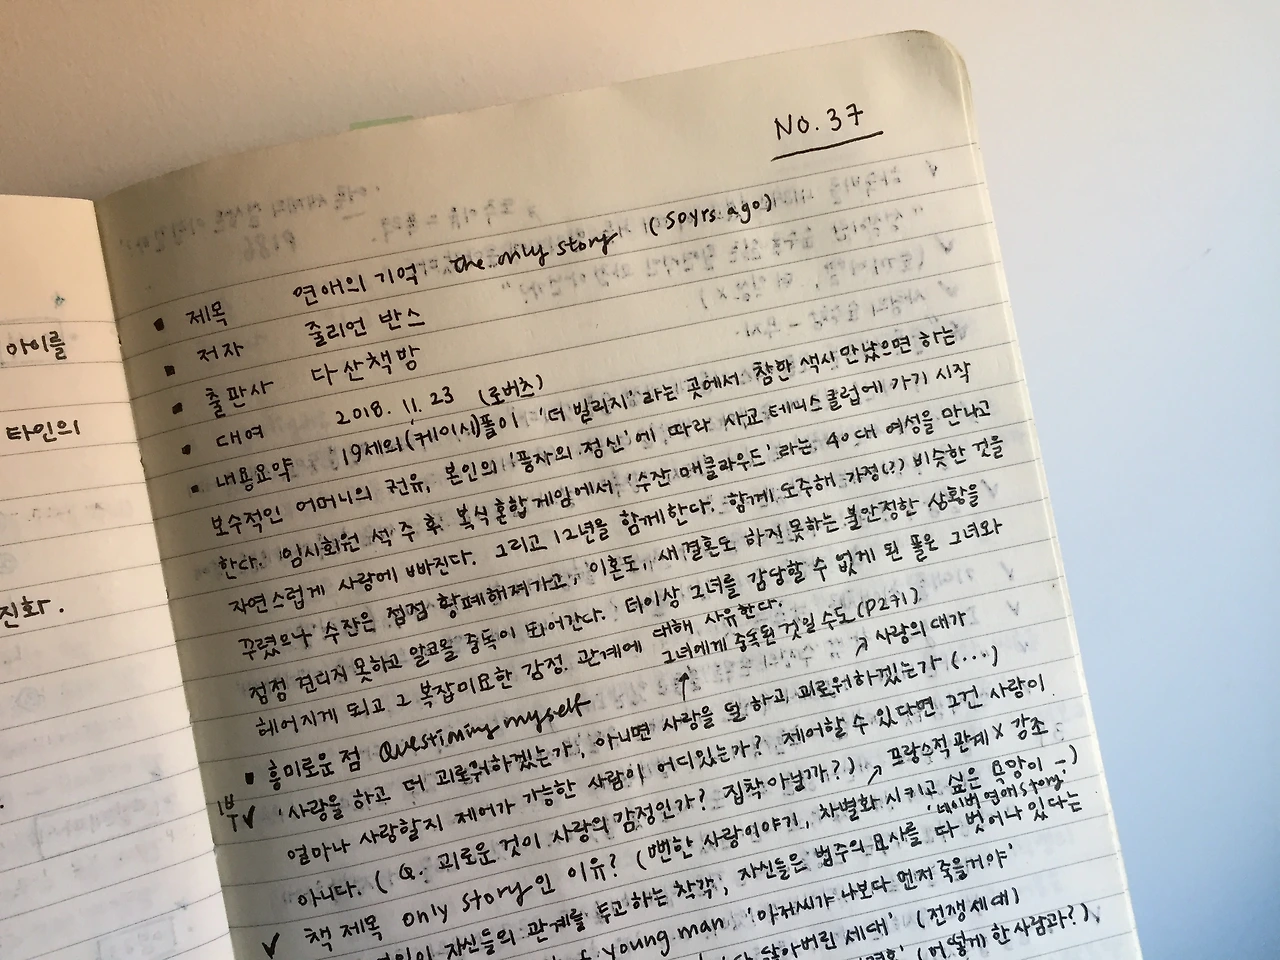 No. 37
아이를
타인의
진화.
▪ 제목 연애의 기억 the only story (50yrs. ago)
▪ 저자 줄리언 반스
▪ 출판사 다산책방
▪ 대여 2018. 11. 23 (로버츠)
▪ 내용요약 19세의(케이시)폴이 '더 빌리지' 라는 곳에서 참한 색시 만났으면 하는
보수적인 어머니의 권유, 본인의 '풍자의 정신'에 따라 사교 테니스 클럽에 가기 시작
한다. 임시회원 석 주 후 복식 혼합 게임에서 '수잔 매클라우드' 라는 40대 여성을 만나고
자연스럽게 사랑에 빠진다. 그리고 12년을 함께한다. 함께 도주해 가정(?) 비슷한 것을
꾸렸으나 수잔은 점점 황폐해져가고, 이혼도, 새 결혼도 하지 못하는 불안정한 상황을
점점 견리지 못하고 알코올 중독이 되어간다. 더이상 그녀를 감당할 수 없게 된 폴은 그녀와
헤어지게 되고 그 복잡미묘한 감정. 관계에 대해 사유한다.
그녀에게 중독된 것일 수도 (P271)
▪ 흥미로운 점 Questioning myself
↗ 사랑의 대가
1부 ✓ '사랑을 하고 더 괴로워하겠는가, 아니면 사랑을 덜 하고 괴로워하겠는가 (...)
얼마나 사랑할지 제어가 가능한 사람이 어디있는가? 제어할 수 있다면 그건 사랑이
아니다. (Q. 괴로운 것이 사랑의 감정인가? 집착 아닐까?) ↗ 프랑스적 관계 X 강조
✓ 책 제목 only story인 이유? (뻔한 사랑이야기, 차별화 시키고 싶은 욕망이 -)
'네이버 연애 story'
자신들의 관계를 두고 하는 착각, 자신들은 범주의 묘사를 다 벗어나 있다는
young man '아저씨가 나보다 먼저 죽을거야'
닳아버린 세대' (전쟁세대)
(어떻게 한 사람과?)